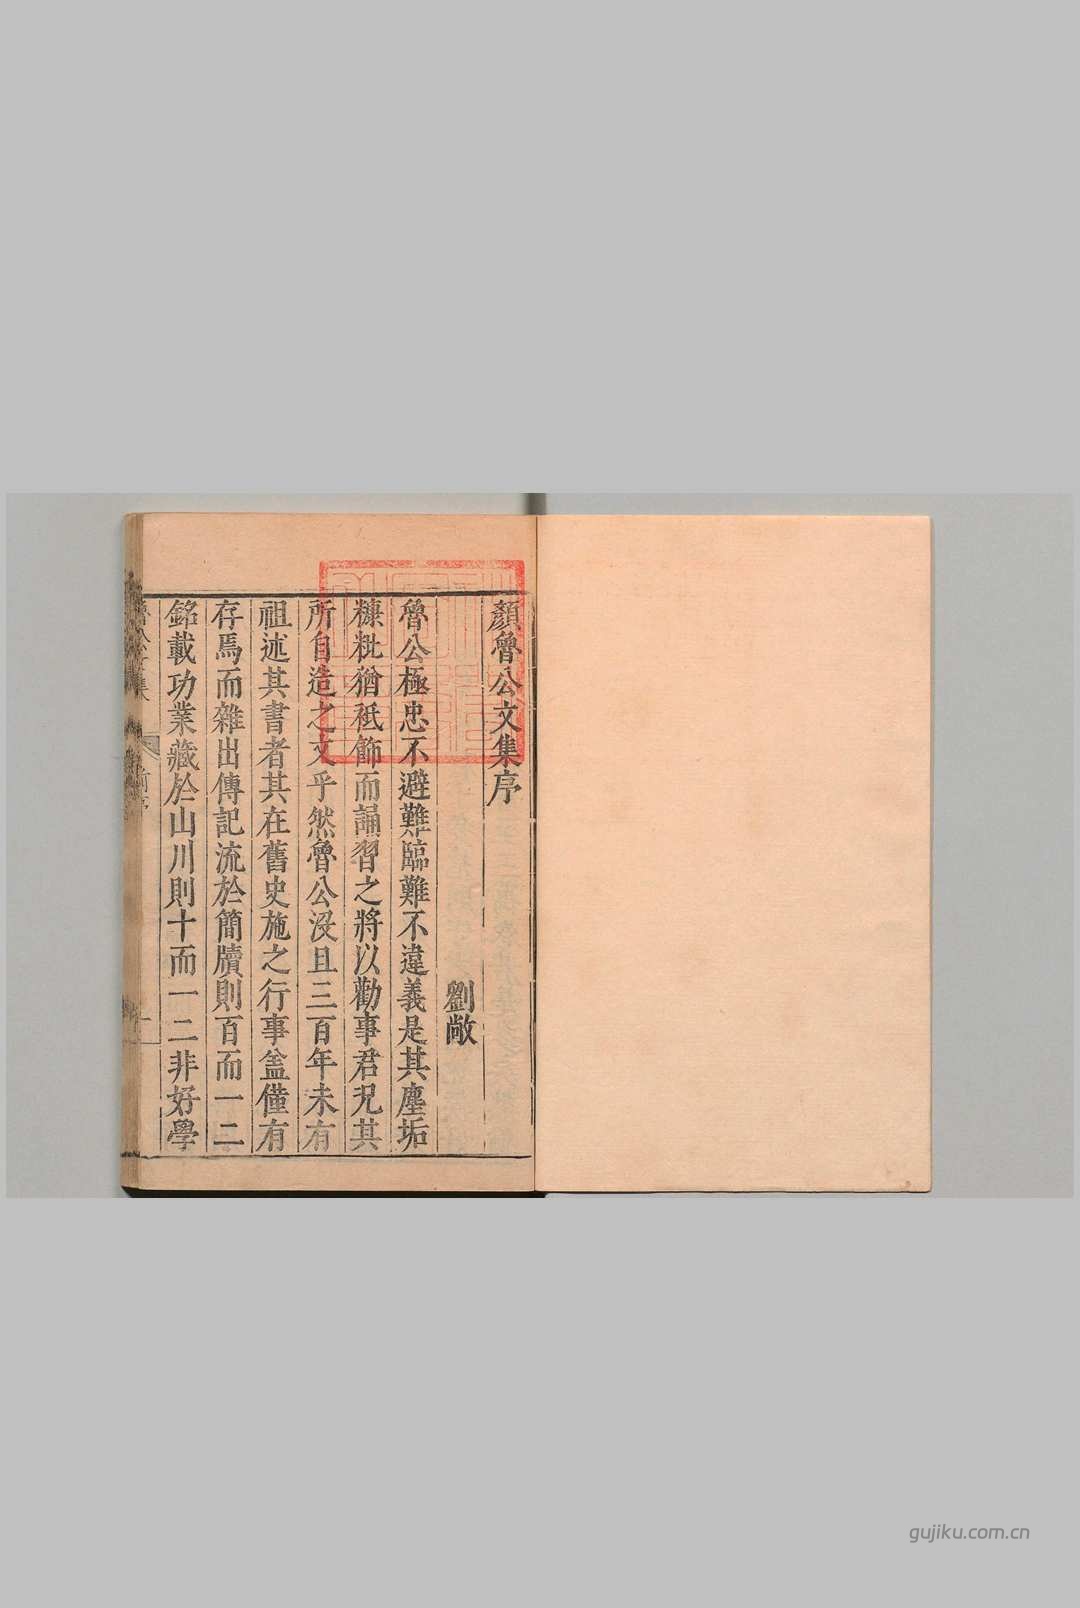 顏魯公文集序
劉敞
魯公極忠不避難臨難不違義是其塵垢
糠粃猶祗飾而誦習之將以勸事君况其
所自造之文乎然魯公没且三百年未有
祖述其書者其在舊史施之行事盖僅有
存焉而雜出傳記流於簡牘則百而一二
銘載功業藏於山川則十而一二非好學
gujiku.com.cn